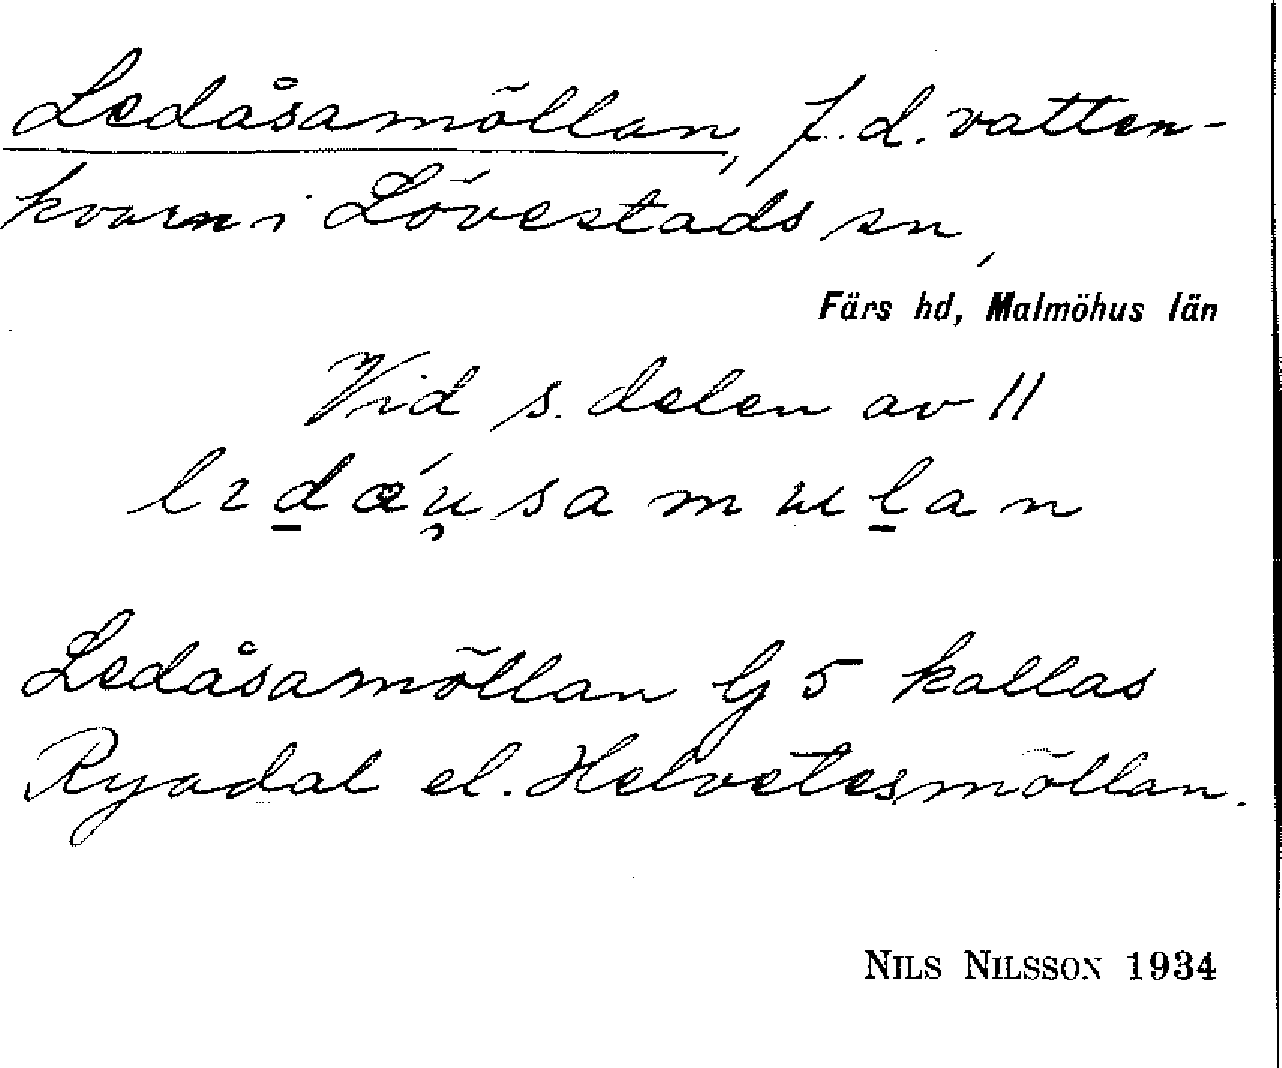 Ledåsamöllan, f.d. vatten-
kvarn i Lövestads sn,
Färs hd, Malmöhus län
Vid s. delen av 11
Ledåsamöllan G 5 kallas
Ryadal el. Helvetesmöllan.
NILS NILSSON 1934